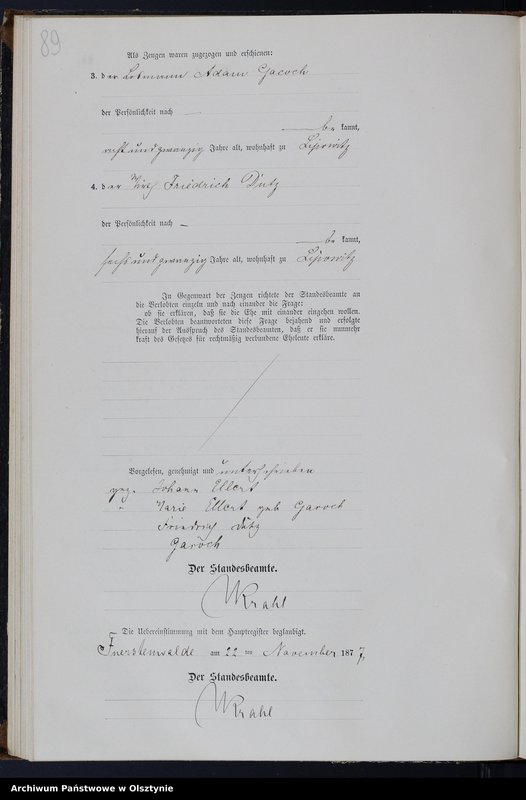 89
Als Zeugen waren zugezogen und erschienen:
3. der Losmann Adam Gacoch
der Persönlichkeit nach —
be kannt,
acht und zwanzig Jahre alt, wohnhaft zu Lipowitz
4. der Wirth Friedrich Dutz
der Persönlichkeit nach —
be kannt,
sechs und zwanzig Jahre alt, wohnhaft zu Lipowitz
In Gegenwart der Zeugen richtete der Standesbeamte an
die Verlobten einzeln und nach einander die Frage:
ob sie erklären, daß sie die Ehe mit einander eingehen wollen.
Die Verlobten beantworteten diese Frage bejahend und erfolgte
hierauf der Ausspruch des Standesbeamten, daß er sie nunmehr
kraft des Gesetzes für rechtmäßig verbundene Eheleute erkläre.
Vorgelesen, genehmigt und unterschrieben
gez. Johann Ellert
" Marie Ellert geb Garoch
Friedrich Dutz
Garoch
Der Standesbeamte.
Krahl
Die Uebereinstimmung mit dem Hauptregister beglaubigt.
Fuerstenwalde am 22 ten November 1877
Der Standesbeamte.
Krahl
Archiwum Państwowe w Olsztynie